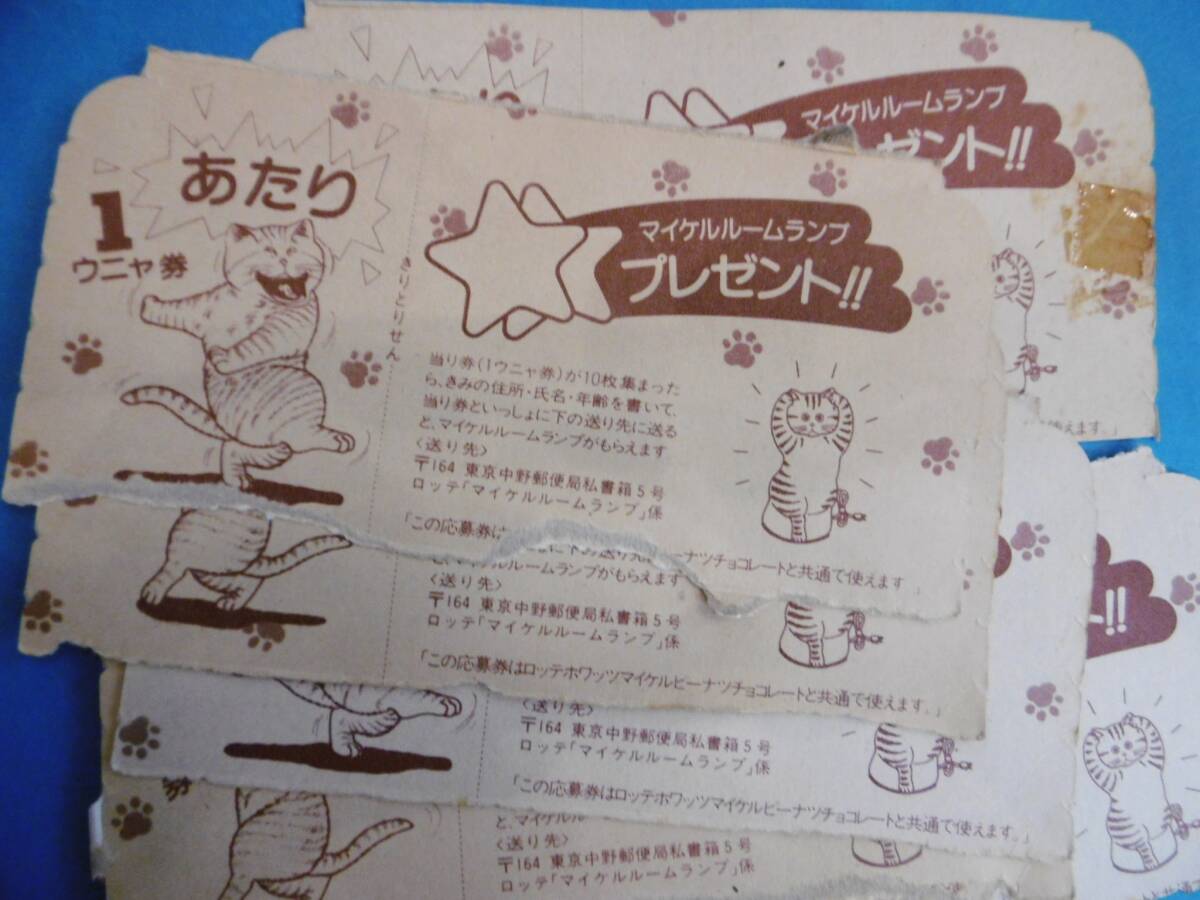 マイケルルームランプ
ゼント!!
あたり
1
ウニャ券
きりとりせん
マイケルルームランプ
プレゼント!!
当り券(1ウニャ券)が10枚集まった
ら、きみの住所・氏名・年齢を書いて、
当り券といっしょに下の送り先に送る
と、マイケルルームランプがもらえます
〈送り先〉
〒164 東京中野郵便局私書箱5号
ロッテ「マイケルルームランプ」係
「この応募券は
ピーナツチョコレートと共通で使えます
使えます。」
に下の送り先
と、マイケルルームランプがもらえます
〈送り先〉
〒164 東京中野郵便局私書箱5号
ロッテ「マイケルルームランプ」係
「この応募券はロッテホワッツマイケルピーナツチョコレートと共通で使えます。」
ト!!
〈送り先〉
〒164 東京中野郵便局私書箱5号
ロッテ「マイケルルームランプ」係
「この応募券はロッテホワッツマイケルピーナツチョコレートと共通で使えます。」
券
と、マイケルル
〈送り先〉
〒164 東京中野郵便局私書箱5号
ロッテ「マイケルルームランプ」係
と共通で使えます。」